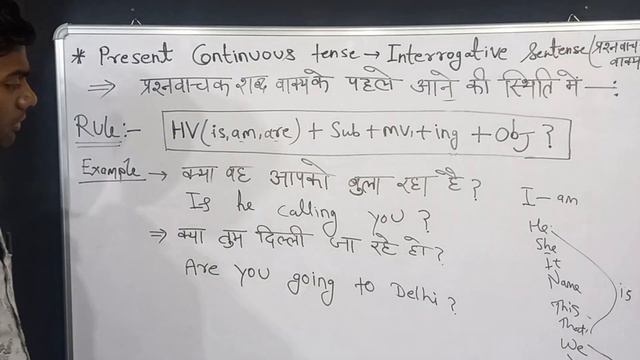 * Present Continuous tense → Interrogative Sentence (प्रश्नवाचक वाक्य
⇒ प्रश्नवाचक शब्द वाक्य के पहले आने की स्थिति में —:
Rule:- HV (is, am, are) + Sub + mv₁ + ing + Obj ?
Example → क्या वह आपको बुला रहा है ?
Is he calling you ?
⇒ क्या तुम दिल्ली जा रहे हो ?
Are you going to Delhi ?
I — am
He
She
It
Name
This
That
is
We